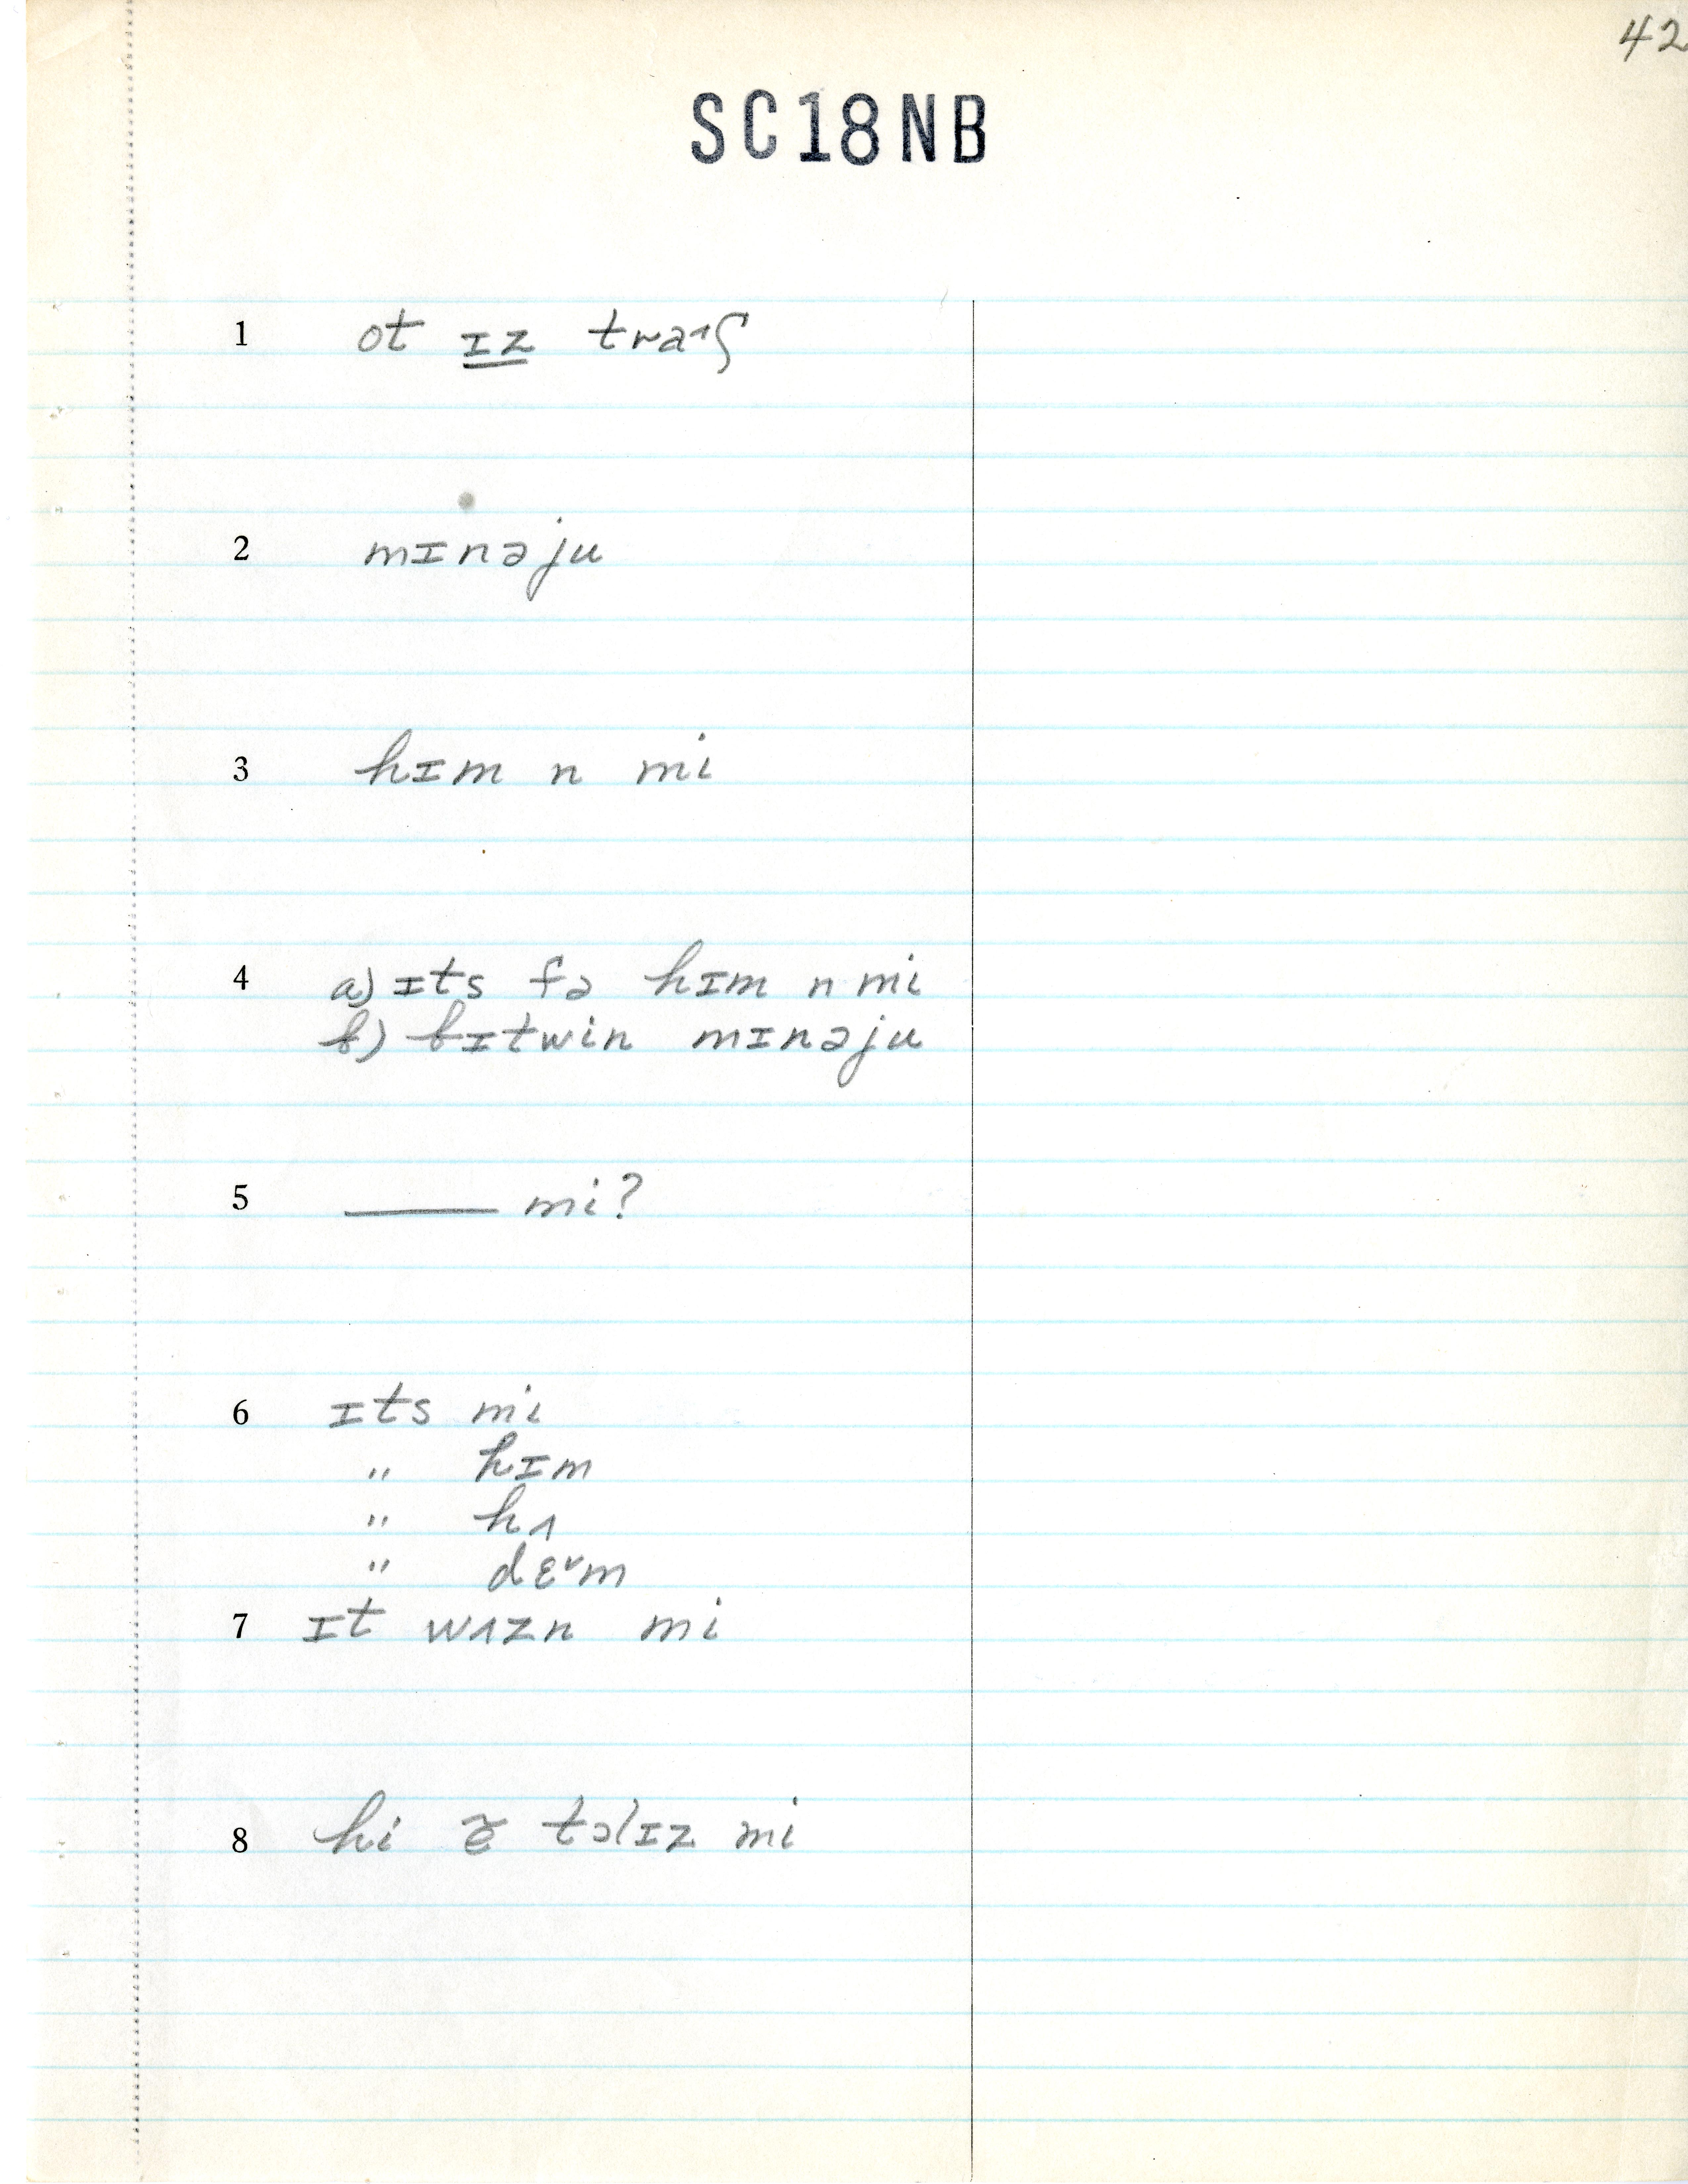 42
SC18NB
1 ot ɪz
2 mɪnəju
3 hɪm n mi
4 a) ɪts fə hɪm n mi
b) bɪtwin mɪnəju
5 ——— mi?
6 ɪts mi
" hɪm
" hʌ
" dɛᵛm
7 ɪt wʌzn mi
8 hi mi